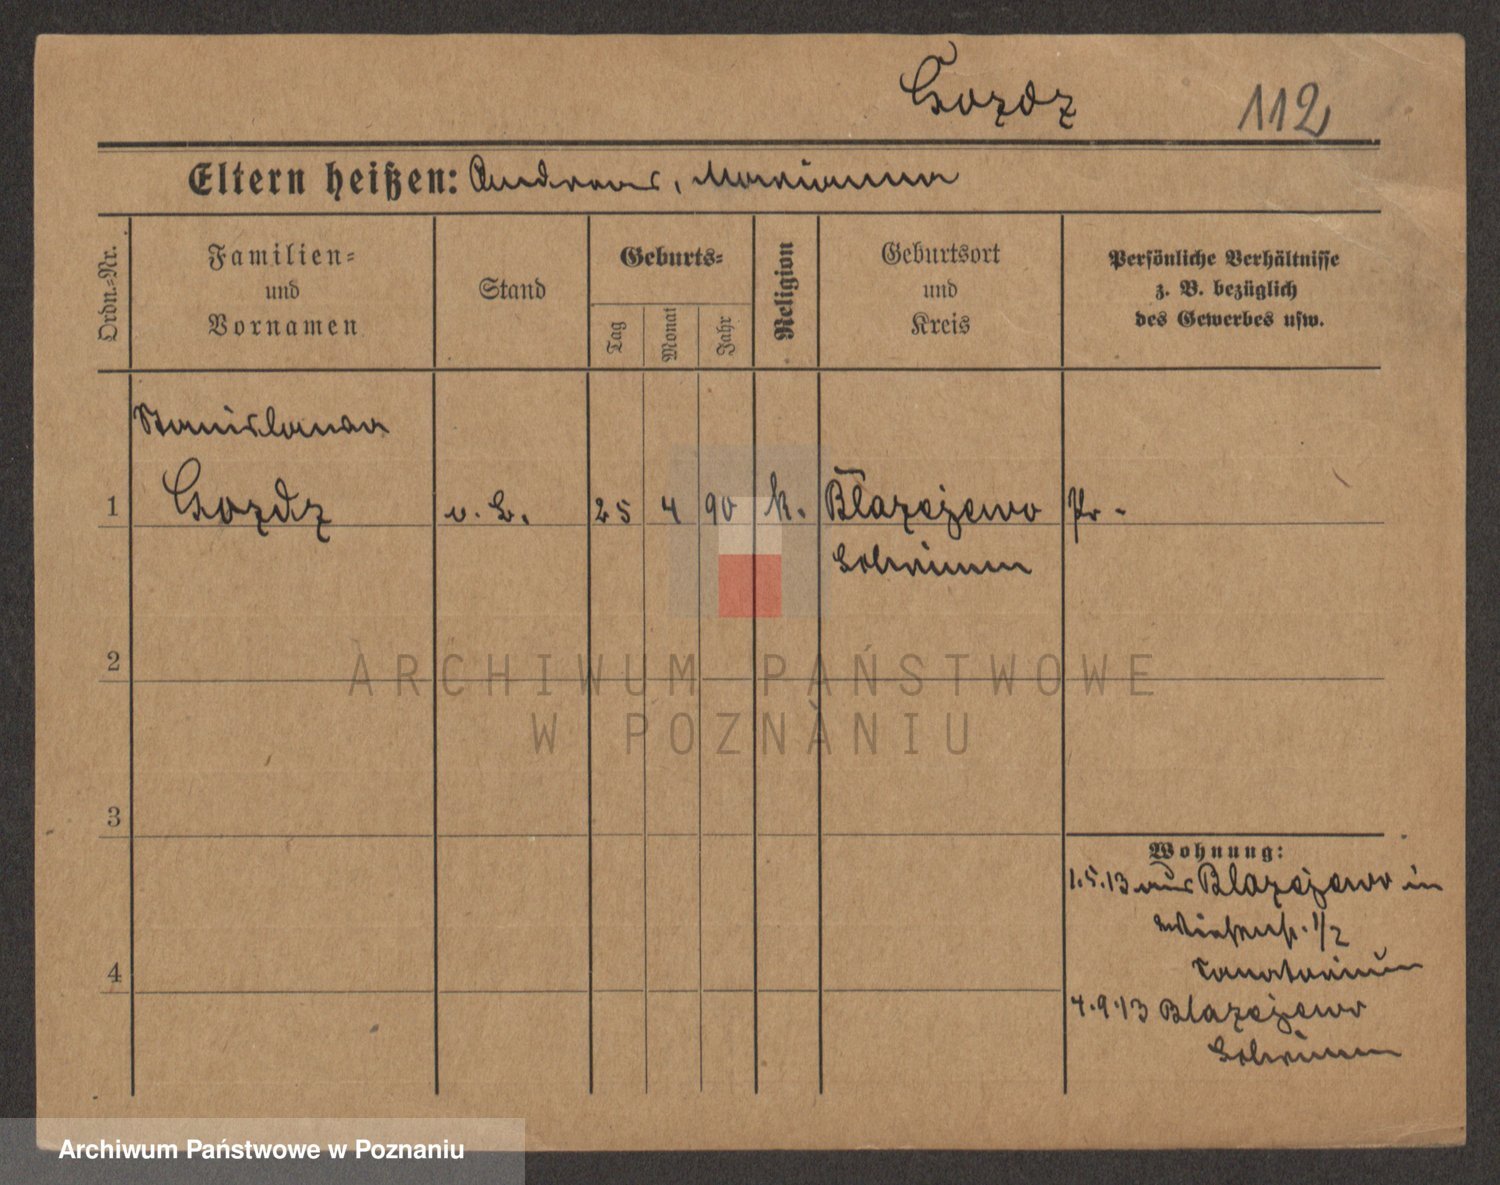 Gozdz 112
Eltern heißen: Andreas, Marianna
Ordn.-Nr.
Familien-
und
Vornamen
Stand
Geburts-
Tag
Monat
Jahr
Religion
Geburtsort
und
Kreis
Persönliche Verhältnisse
z. B. bezüglich
des Gewerbes usw.
Stanislawa
1 Gozdz 25 4 90 k. Blazejewo Pr.
Schrimm
2
ARCHIWUM PAŃSTWOWE
W POZNANIU
3
Wohnung:
1.5.13 aus Blazejewo in
1/2
Sanatorium
4
4.9.13 Blazejewo
Schrimm
Archiwum Państwowe w Poznaniu